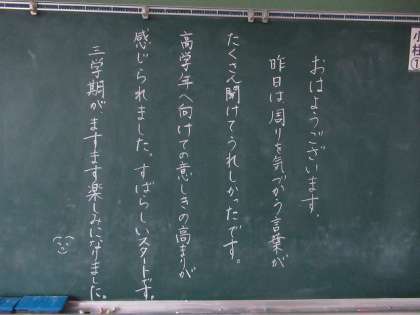 おはようございます。
昨日は周りを気づかう言葉が
たくさん聞けてうれしかったです。
高学年へ向けての意しきの高まりが
感じられました。すばらしいスタートです。
三学期がますます楽しみになりました。